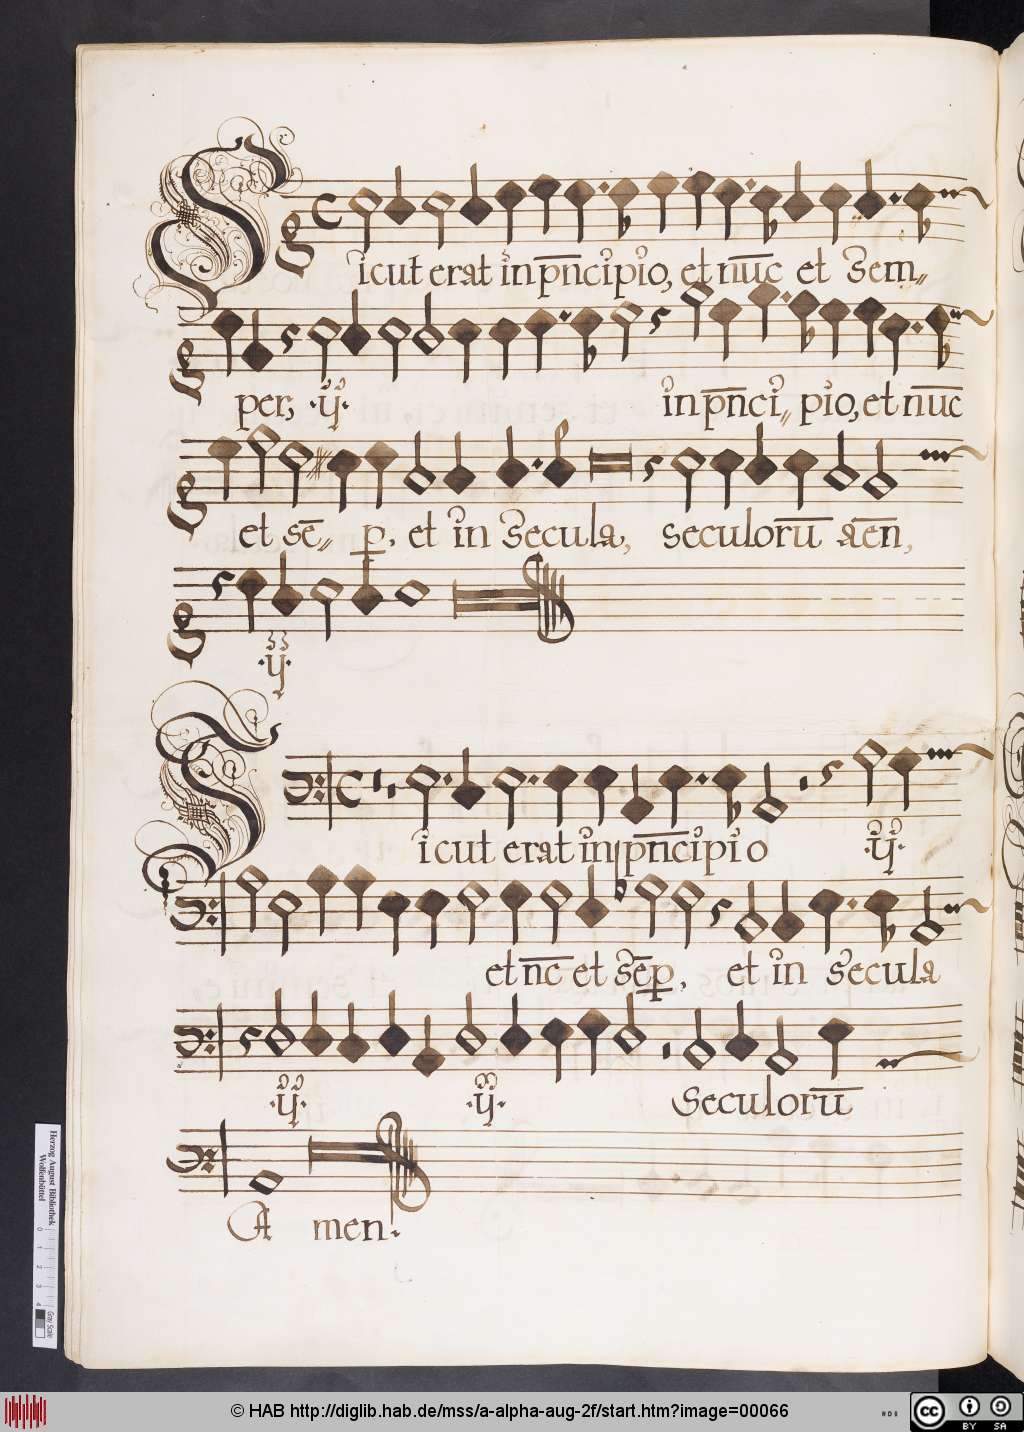 Sicut erat in prīncipio, et nūc et Sem〃
per, ·ij· in prīnci〃 pio, et nūc
et sē〃 p. et in Secula, seculorū aēn,
·ij·
Sicut erat in prīncipio ·ij·
et nc̄ et Sēp, et in Secula
·ij· ·ij· Seculorū
A men.
Herzog August Bibliothek
Wolfenbüttel
0 1 2 3 4
Gray Scale
© HAB http://diglib.hab.de/mss/a-alpha-aug-2f/start.htm?image=00066
HDB
cc BY SA